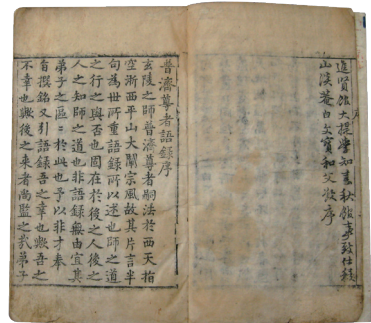 進賢館大提學知春秋館事致仕稷
山淡菴白文寶和父敬序
普濟尊者語錄序
玄陵之師普濟尊者嗣法於西天指
空浙西平山大闡宗風故其片言半
句為世所重語錄所以述也師之道
之行之與否也固在於後之人後之
人之知師之道也非語錄無由宜其
弟子之區〻於此也予以非才奉
旨撰銘又引語錄吾之幸也歟吾之
不幸也歟後之來者尚監之哉弟子